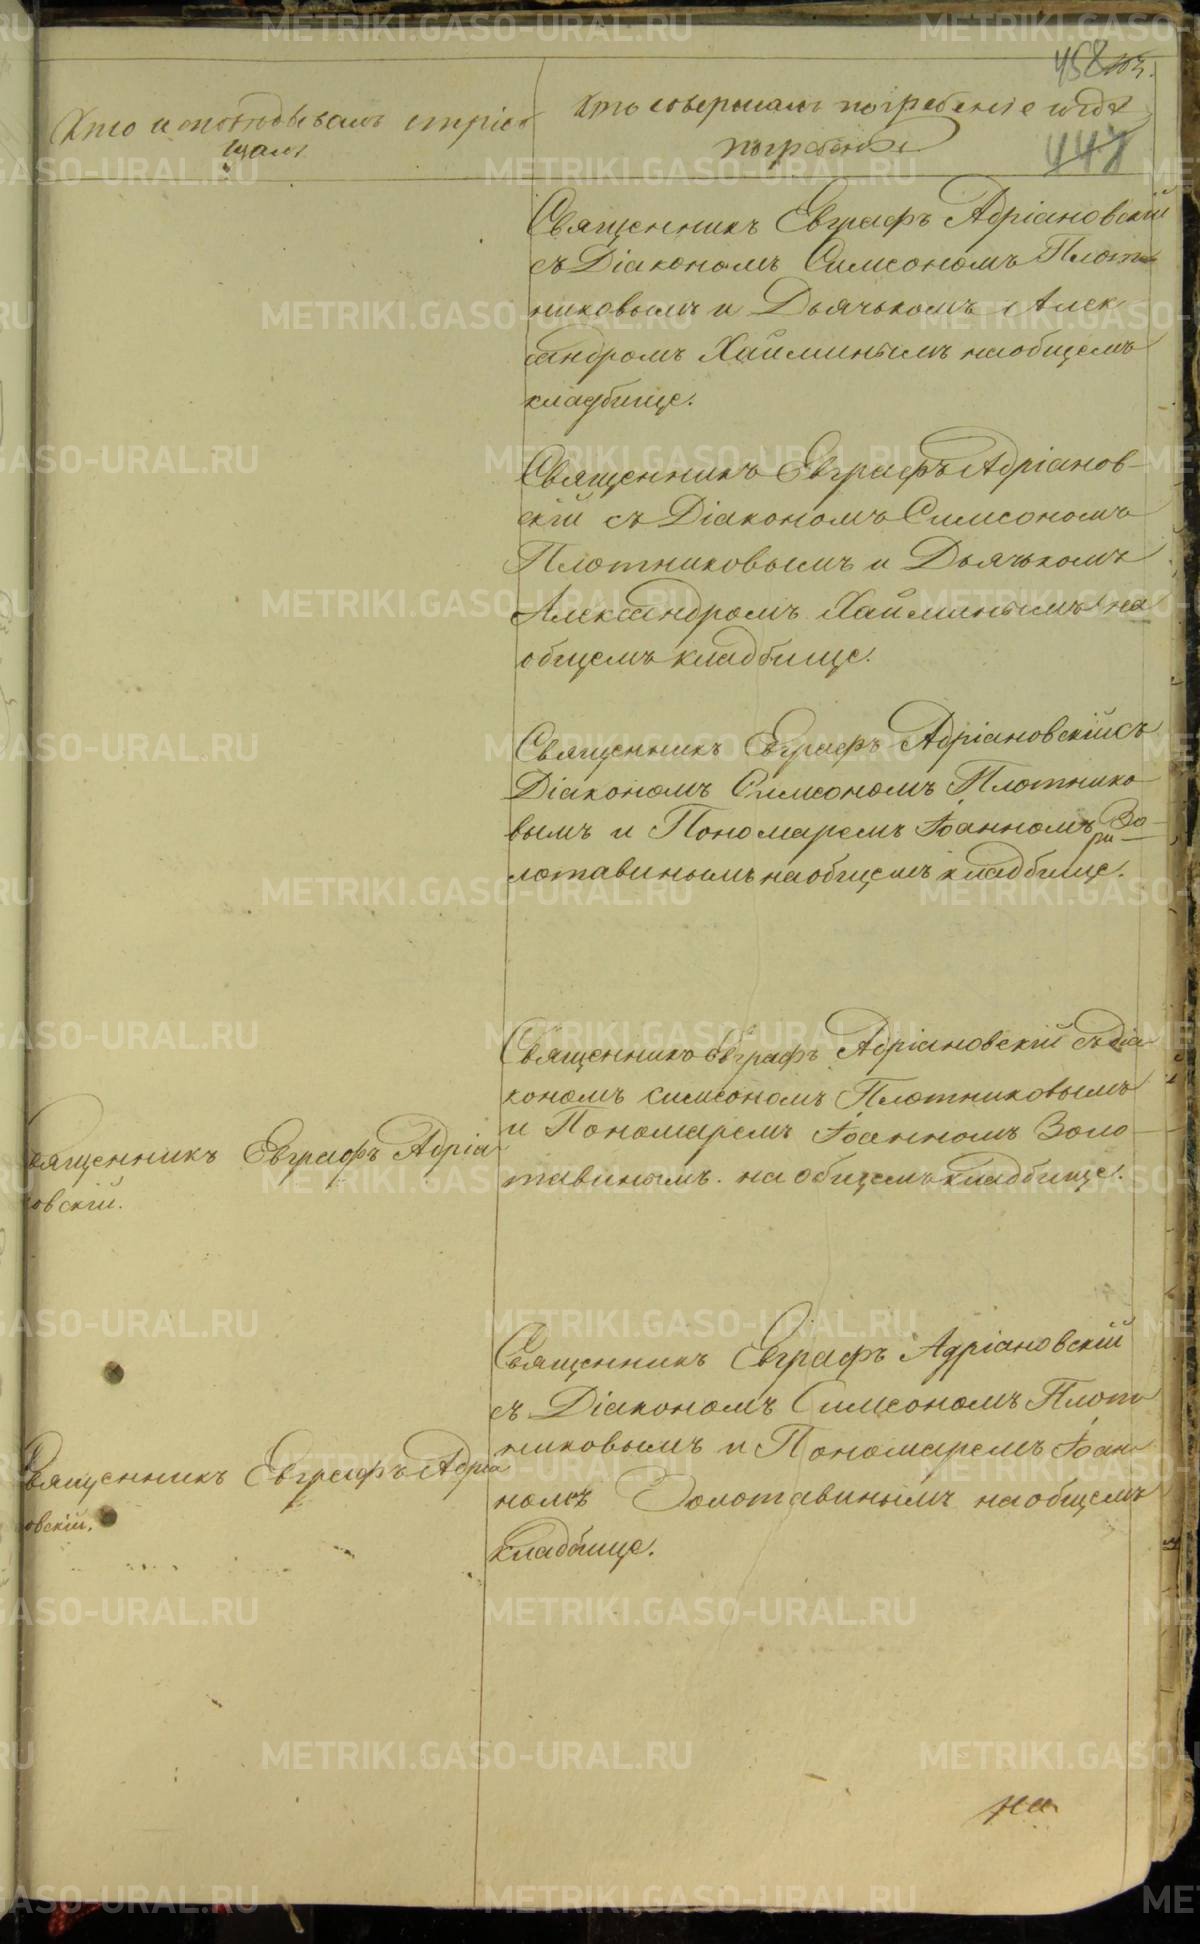 458
447
Кто исповѣдывалъ и пріоб
щалъ
Кто совершалъ погребеніе и гдѣ
погребены
Священникъ Евграфъ Адріановскій
съ Діакономъ Симеономъ Плот
никовымъ и Дьячькомъ Алек
сандромъ Хайминымъ на общемъ
кладбище.
Священникъ Евграфъ Адріанов-
скій съ Діакономъ Симеономъ
Плотниковымъ и Дьячькомъ
Александромъ Хайминымъ на
общемъ кладбище.
Священникъ Евграфъ Адріановскій съ
Діакономъ Симеономъ Плотнико
вымъ и Пономаремъ Іоанномъ Зо-
лотавинымъ на общемъ кладбище.
Священникъ Евграфъ Адріановскій съ діа
кономъ Симеономъ Плотниковымъ
и Пономаремъ Іоанномъ Золо-
тавинымъ. на общемъ кладбище.
вященникъ Евграфъ Адріа
овскій.
Священникъ Евграфъ Адріановскій
съ Діакономъ Симеономъ Плот
никовымъ и Пономаремъ Іоан
номъ Золотавинымъ на общемъ
кладбище.
Священникъ Евграфъ Адріа
овскій.
METRIKI.GASO-URAL.RU